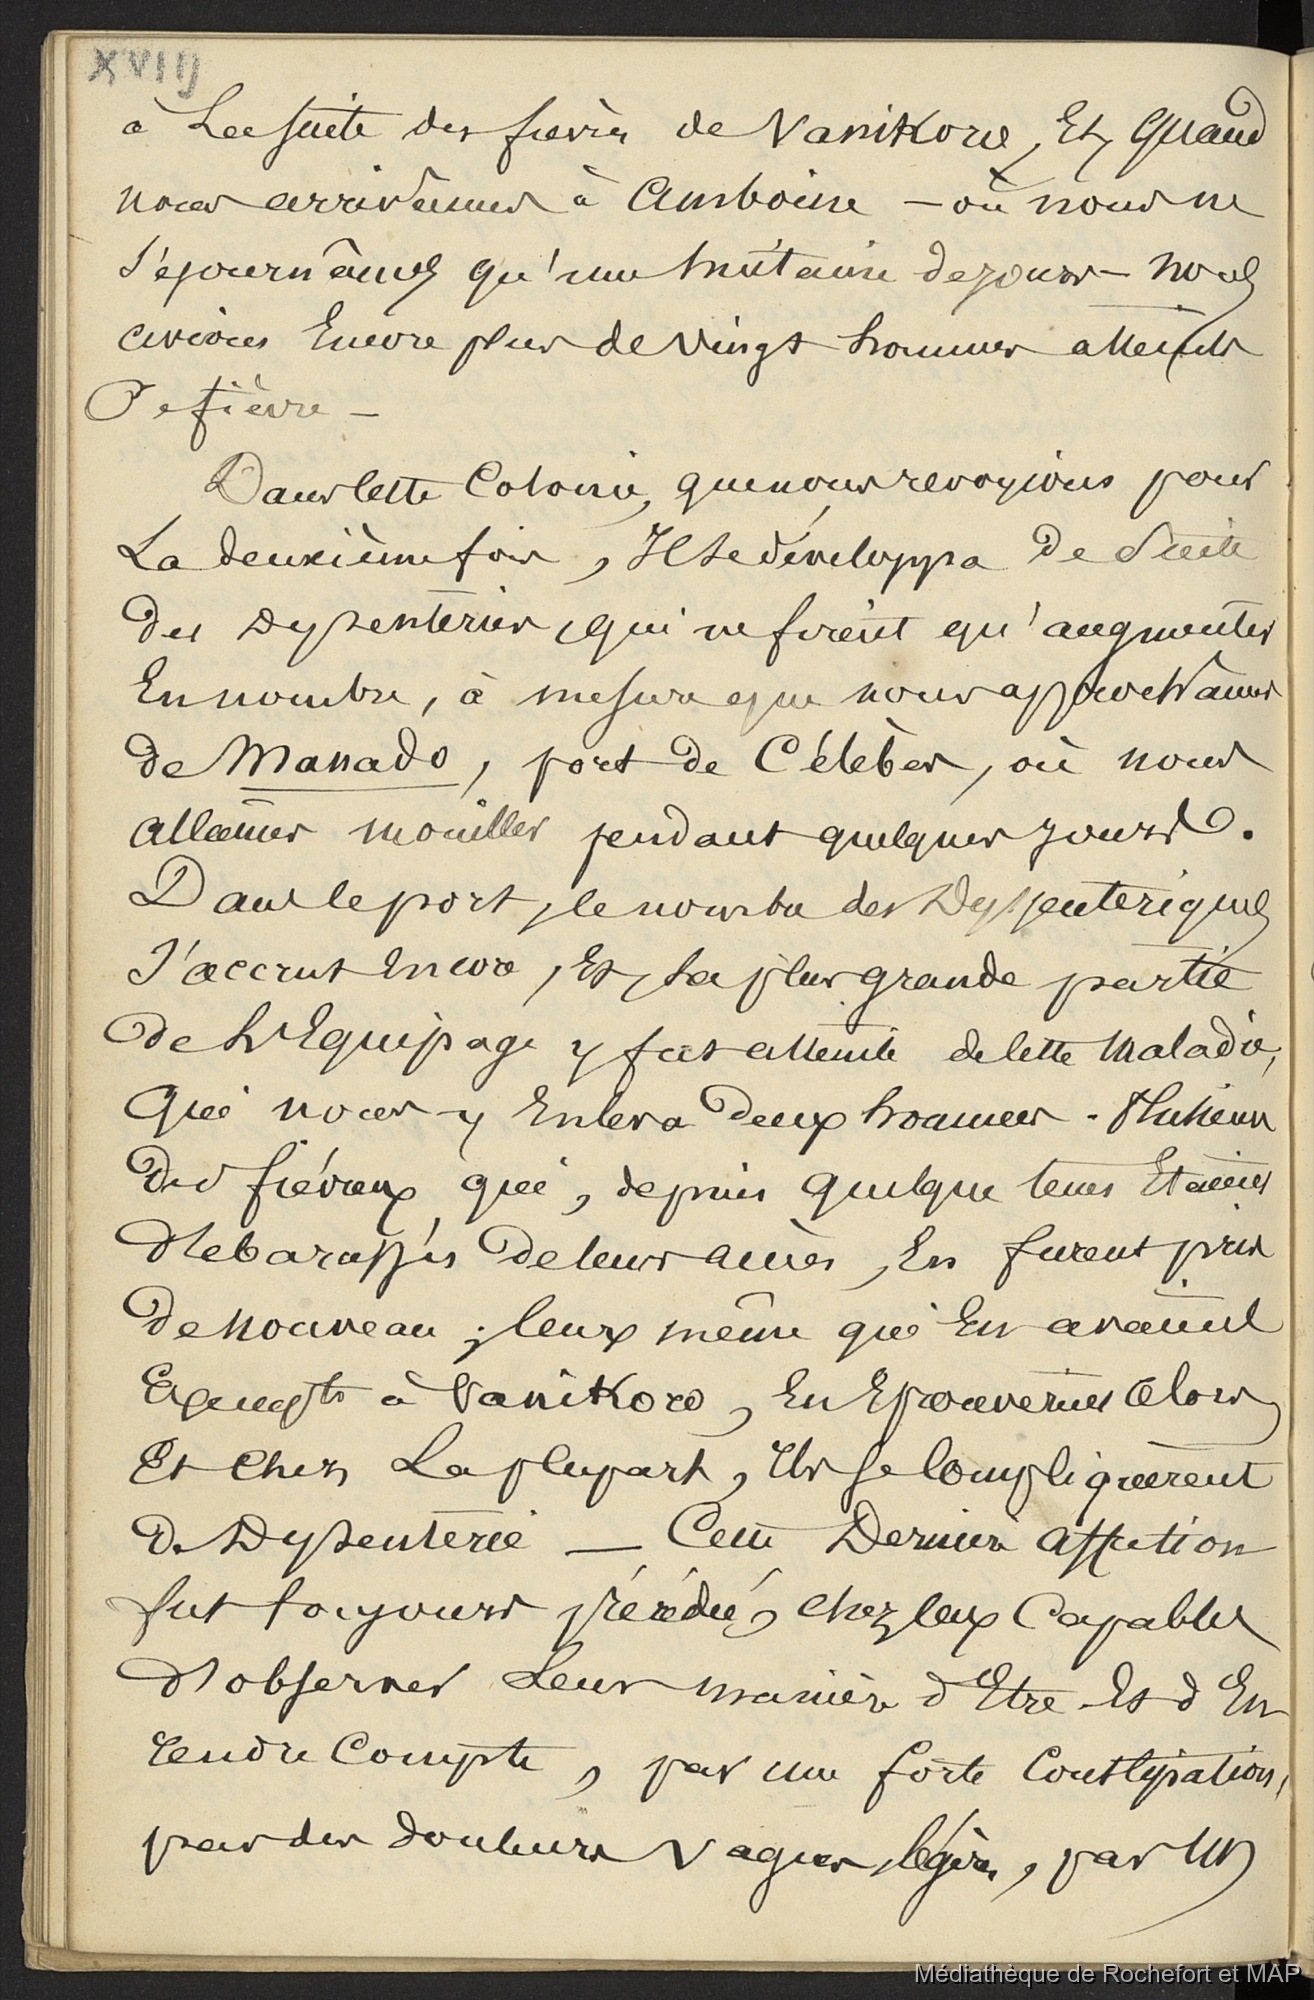 XVIIJ
à La suite des fièvres de Vanikoro, Et, Quand
nous arrivâmes à Amboine – où nous ne
séjournâmes qu'une huitaine de jours – nous
avions Encore plus de vingt hommes atteints
De fièvre –
Dans cette Colonie, que nous revoyions pour
La deuxième fois, Il se développa De suite
Des Dysenteries, qui ne firent qu'augmenter
En nombre, à mesure que nous approchâmes
de Manado, port de Célèbes, où nous
allâmes mouiller pendant quelques jours.
Dans le port, le nombre des Dyssenteriques
s'accrut Encore, Et, La plus grande partie
de L'Equipage y fut atteinte de cette Maladie,
Qui nous y Enleva Deux hommes. Plusieurs
Des fiévreux qui, depuis quelque tems Etaient
débarassés De leurs accès, En furent pris
De nouveau ; ceux même qui En avaient
Exempts à Vanikoro, En Eprouvèrent alors,
Et Chez La plupart, Ils se compliquèrent
De Dysenterie — Cette Dernière affection
fut toujours précédée, chez ceux Capables
d'observer Leur manière d'Etre Et d'En
rendre Compte, par une forte Constipation,
par des douleurs vagues, légères, par un
Médiathèque de Rochefort et MAP